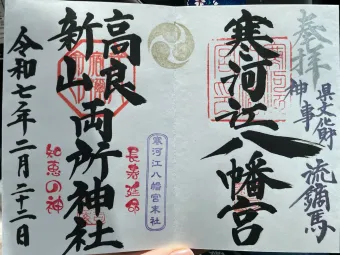 奉拝
県文化財
神事 流鏑馬
寒河江八幡宮
寒河江八幡宮末社
長寿延命
高良
新山
両所神社
知恵の神
令和七年二月二十二日